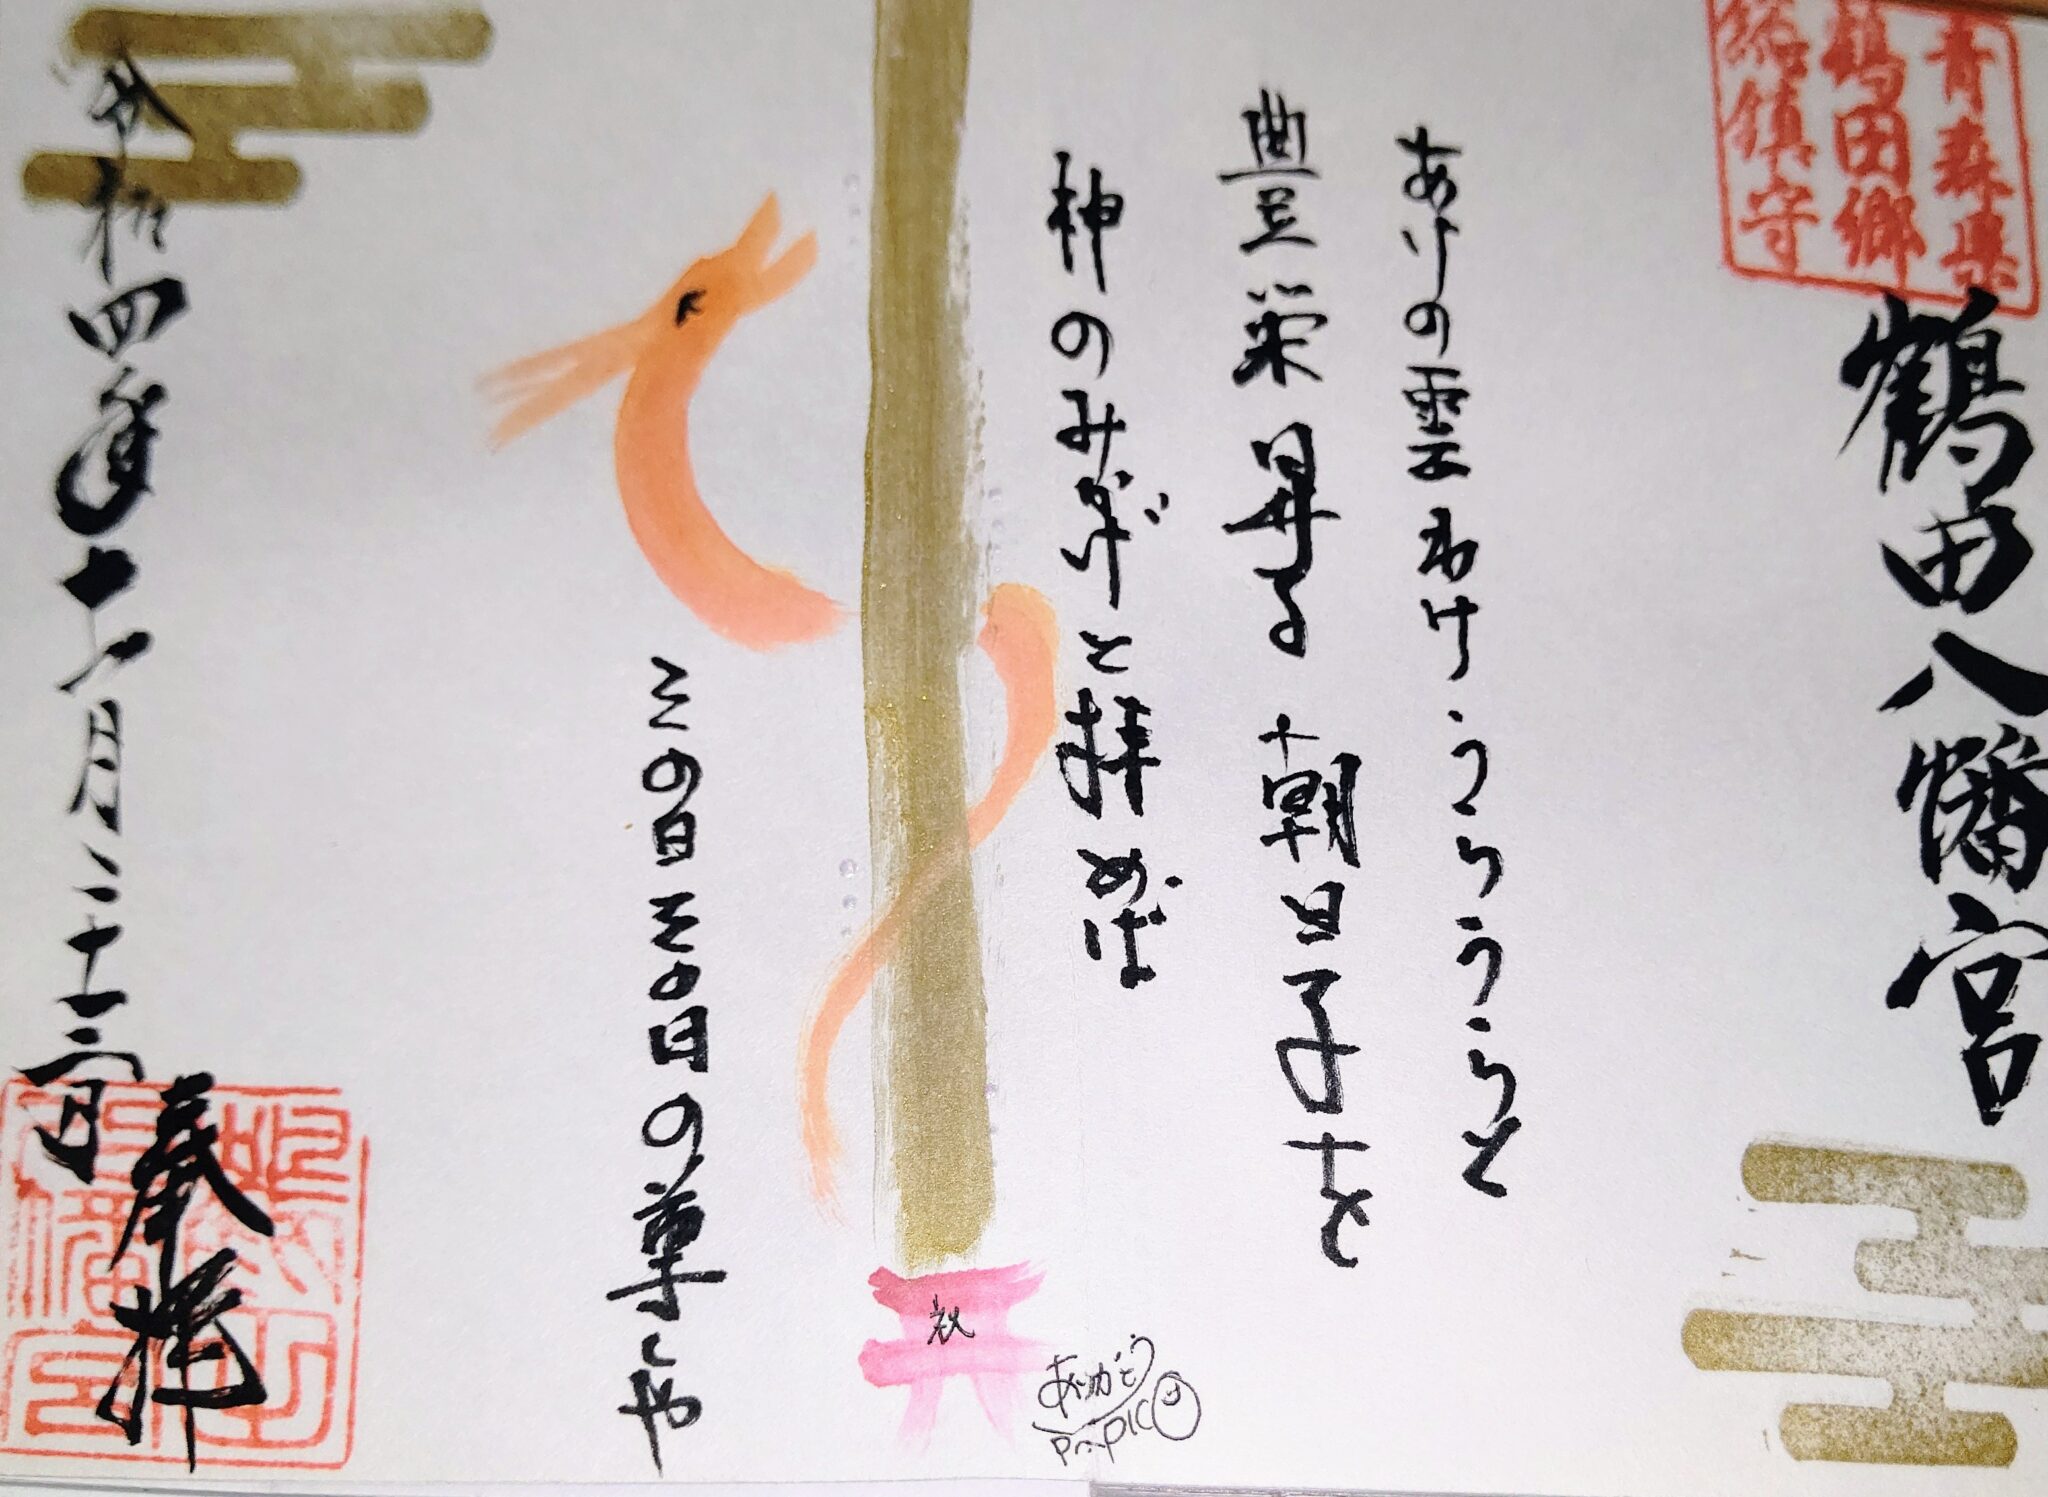 青森県
鶴田郷
総鎮守
鶴田八幡宮
あけの雲わけうらうらと
豊栄昇る朝日子を
神のみかげと拝めば
その日その日の尊しや
祝
ありがとう
令和四年十一月二十三日
奉拝